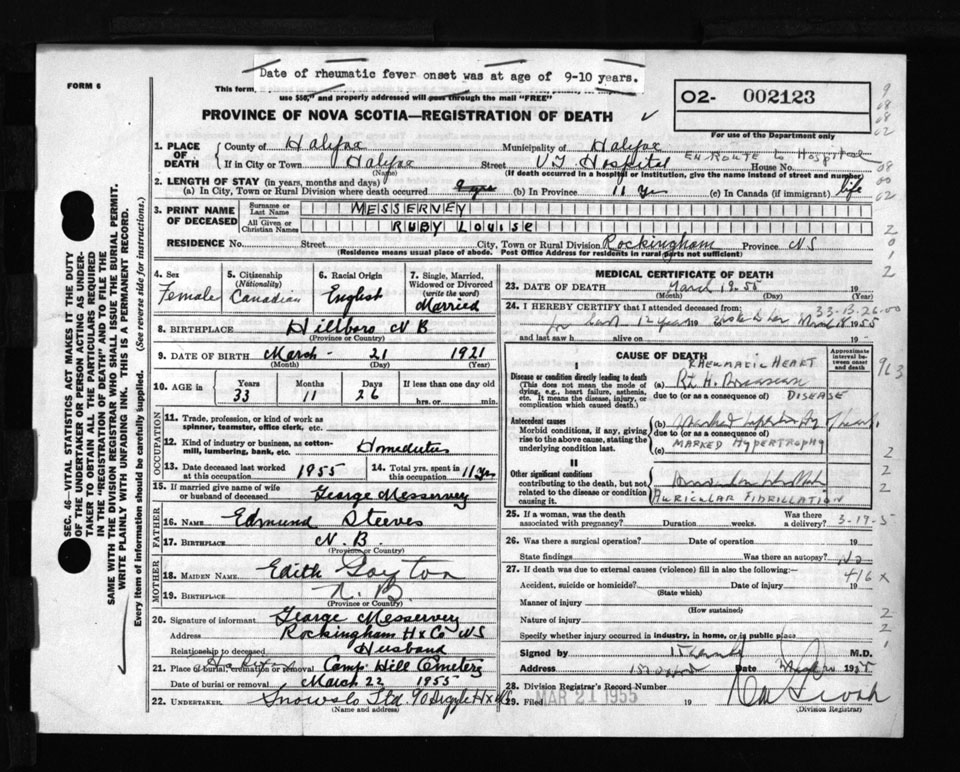 Date of rheumatic fever onset was at age of 9-10 years.
FORM 6
This form,
use $50," and properly addressed will pass through the mail "FREE"
PROVINCE OF NOVA SCOTIA—REGISTRATION OF DEATH
O2- 002123
For use of the Department only
1. PLACE OF DEATH
County of Halifax Municipality of Halifax
If in City or Town Halifax Street V.G. Hospital En Route to Hospital House No.
(Name) (If death occurred in a hospital or institution, give the name instead of street and number)
2. LENGTH OF STAY (in years, months and days)
(a) In City, Town or Rural Division where death occurred (b) In Province 11 Yr (c) In Canada (if immigrant) life
3. PRINT NAME OF DECEASED
Surname or Last Name MESSERVEY
All Given or Christian Names RUBY LOUISE
RESIDENCE No. Street City, Town or Rural Division Rockingham Province NS
(Residence means usual place of abode. Post Office Address for residents in rural parts not sufficient)
4. Sex Female
5. Citizenship (Nationality) Canadian
6. Racial Origin English
7. Single, Married, Widowed or Divorced (write the word) Married
8. BIRTHPLACE Hillboro N B
(Province or Country)
9. DATE OF BIRTH March - 21 1921
(Month) (Day) (Year)
10. AGE in Years 33 Months 11 Days 26 If less than one day old hrs. or min.
OCCUPATION
11. Trade, profession, or kind of work as spinner, teamster, office clerk, etc.
12. Kind of industry or business, as cotton-mill, lumbering, bank, etc. Homeduties
13. Date deceased last worked at this occupation 1955 14. Total yrs. spent in this occupation 11 Yrs
15. If married give name of wife or husband of deceased George Messervey
FATHER
16. NAME Edmund Steeves
17. BIRTHPLACE N.B.
(Province or Country)
MOTHER
18. MAIDEN NAME Edith
19. BIRTHPLACE N. B.
(Province or Country)
20. Signature of informant George Messervey
Address Rockingham Hx Co NS
Relationship to deceased Husband
21. Place of burial, cremation or removal Camp Hill Cemetery
Date of burial or removal March 22 1955
22. UNDERTAKER Snows Ltd. 90 Argyle Hx NS
(Name and address)
MEDICAL CERTIFICATE OF DEATH
23. DATE OF DEATH March 19 55 19
(Month) (Day) (Year)
33-13-26-00
24. I HEREBY CERTIFY that I attended deceased from:
for last 12 years 19 to 1955
and last saw h alive on 19
CAUSE OF DEATH
Approximate interval between onset and death
I
Disease or condition directly leading to death
(This does not mean the mode of dying, e.g., heart failure, asthenia, etc. It means the disease, injury, or complication which caused death.)
RHEUMATIC HEART
(a) Rh. H.
due to (or as a consequence of) DISEASE
963
Antecedent causes
Morbid conditions, if any, giving rise to the above cause, stating the underlying condition last.
(b) Marked
due to (or as a consequence of)
(c) MARKED HYPERTROPHY
II
Other significant conditions contributing to the death, but not related to the disease or condition causing it.
AURICULAR FIBRILLATION
25. If a woman, was the death associated with pregnancy? Duration weeks. Was there a delivery? 3-19-5
26. Was there a surgical operation? Date of operation 19
State findings Was there an autopsy? No
27. If death was due to external causes (violence) fill in also the following:— 416x
Accident, suicide or homicide? Date of injury 19
(State which)
Manner of injury
(How sustained)
Nature of injury
Specify whether injury occurred in industry, in home, or in public place
Signed by M.D.
Address Date 1955
28. Division Registrar's Record Number
29. Filed MAR 21 1955 19
(Division Registrar)
SEC. 46—VITAL STATISTICS ACT MAKES IT THE DUTY OF THE UNDERTAKER OR PERSON ACTING AS UNDERTAKER TO OBTAIN ALL THE PARTICULARS REQUIRED IN THE "REGISTRATION OF DEATH" AND TO FILE THE SAME WITH THE DIVISION REGISTRAR WHO SHALL ISSUE THE BURIAL PERMIT.
WRITE PLAINLY WITH UNFADING INK. THIS IS A PERMANENT RECORD.
Every item of information should be carefully supplied. (See reverse side for instructions.)